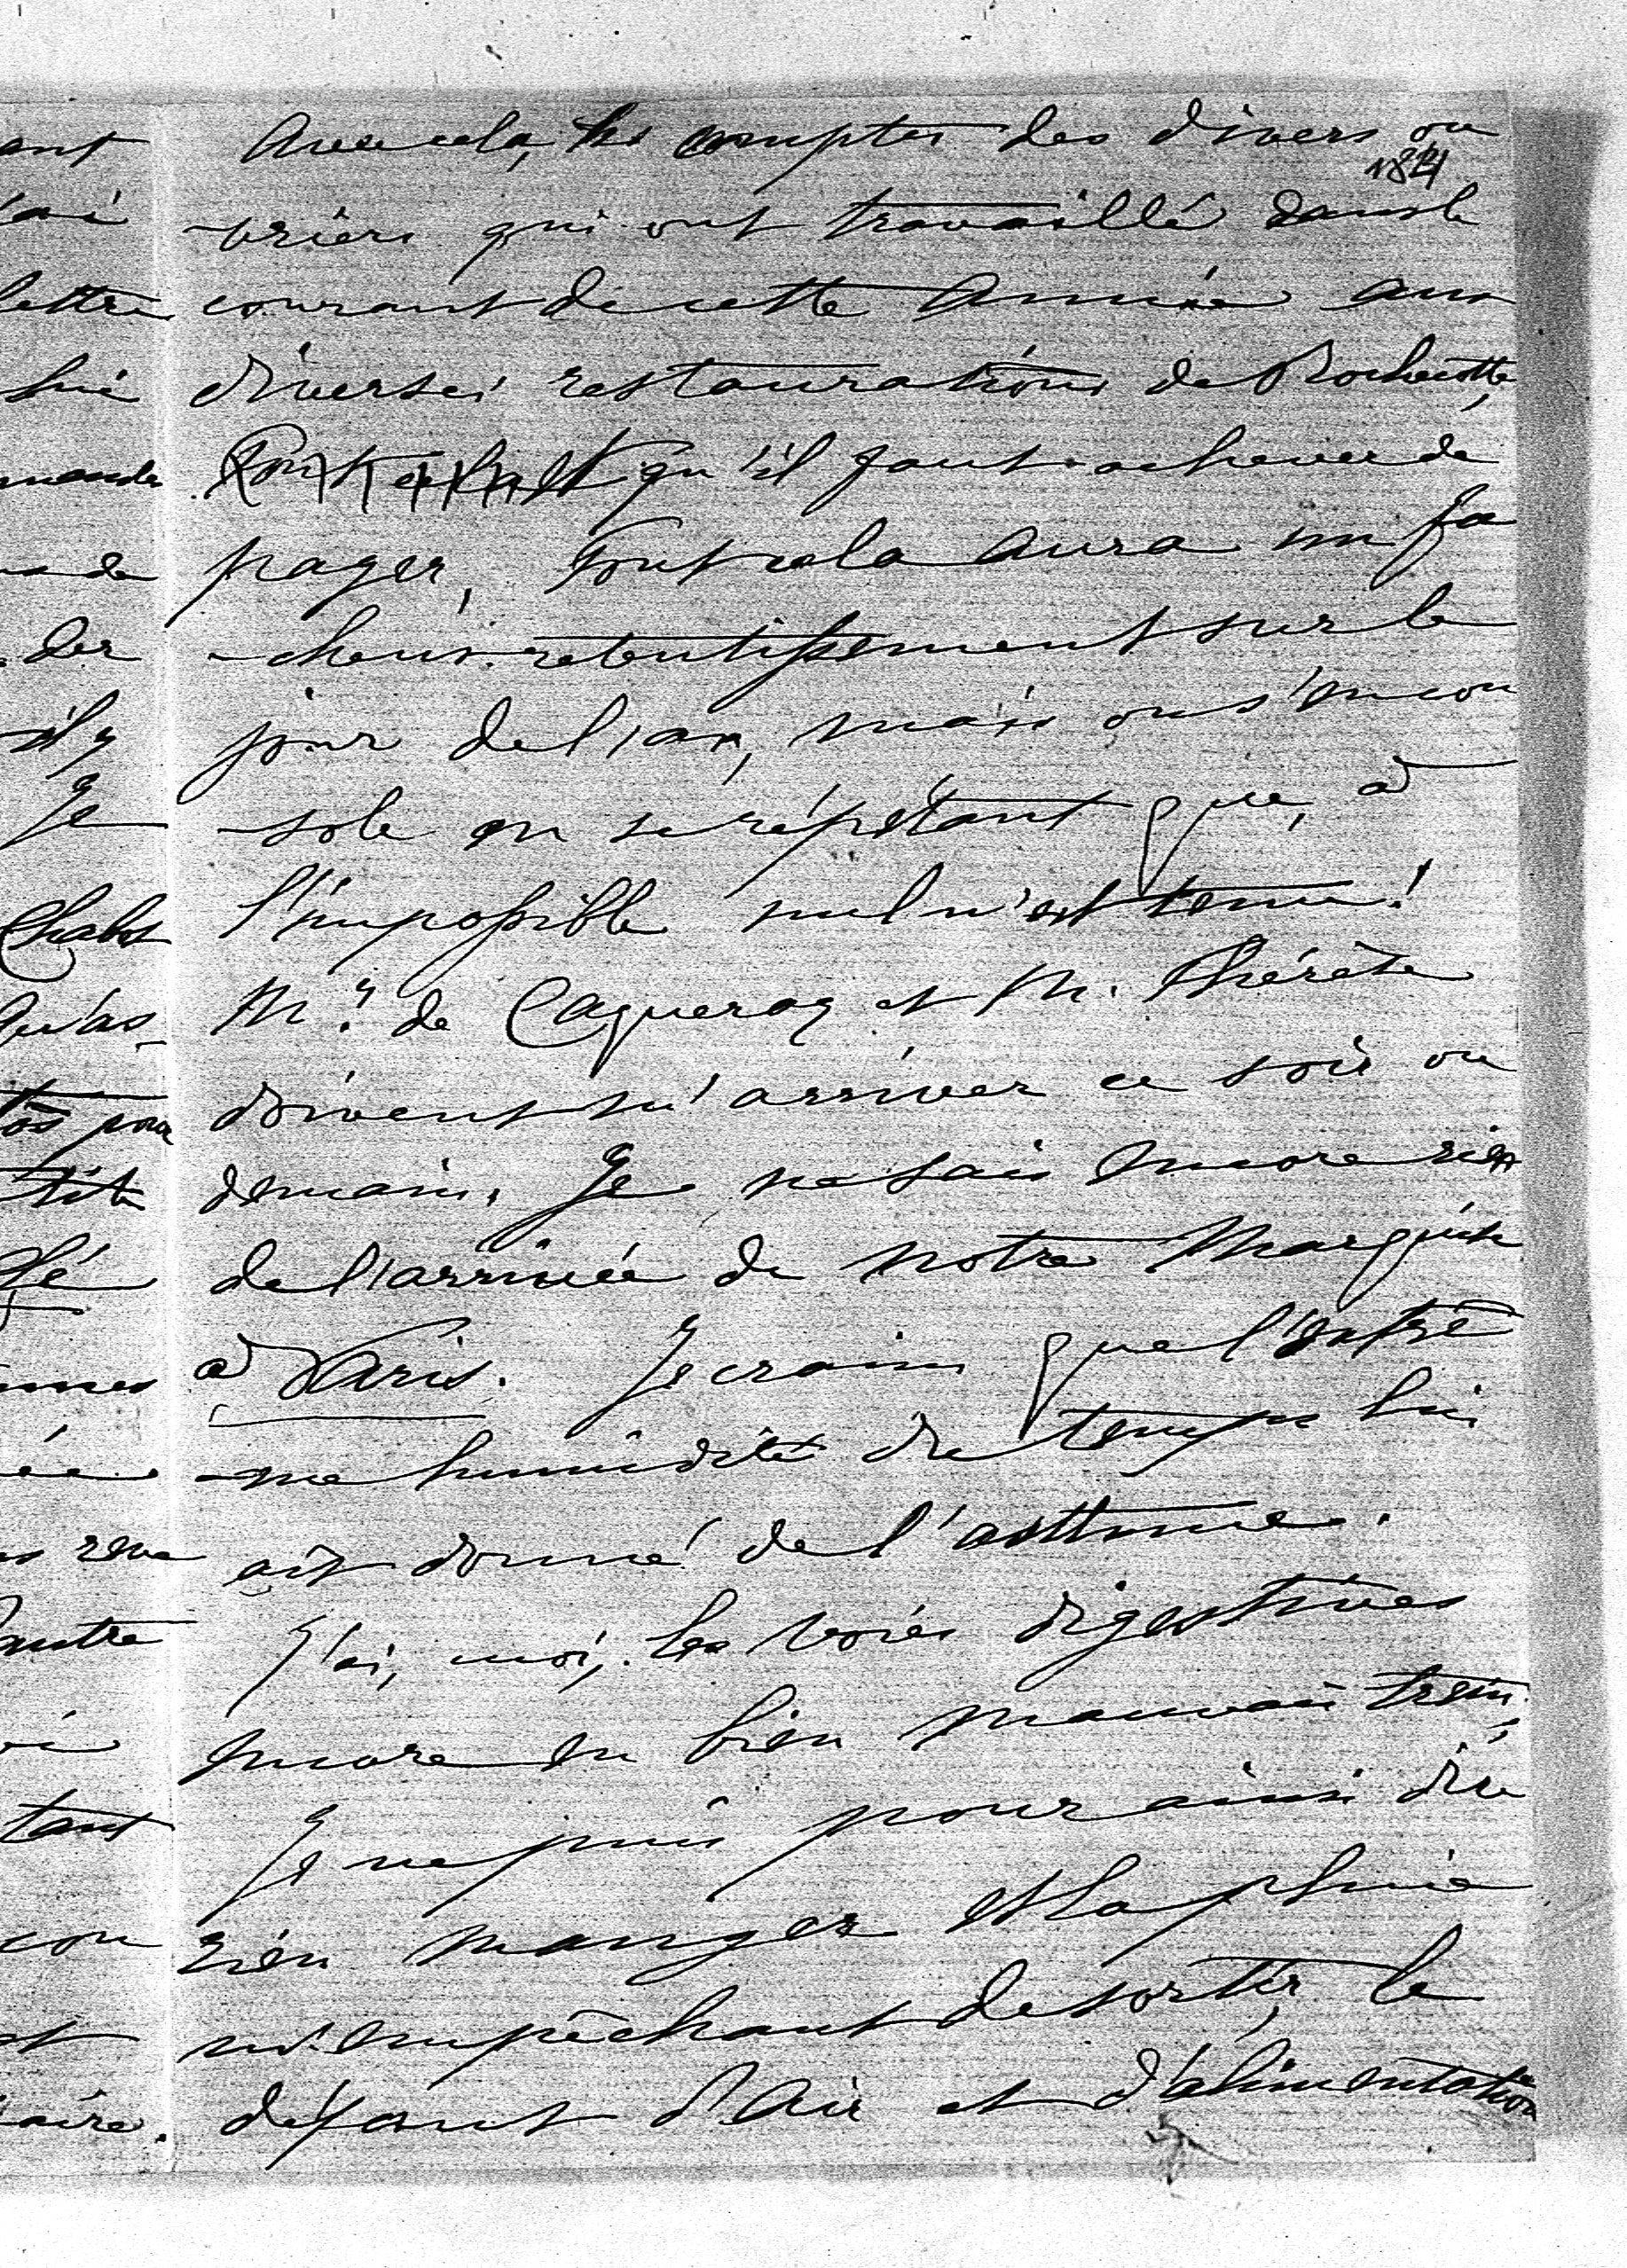 Avec cela, les comptes des divers ou
1824
-vriers qui ont travaillé dans le
courant de cette Année aux
diverses restaurations de Rochecotte,
qu'il faut achever de
payer. Tout cela aura un fa
-cheux retentissement sur le
jour de l'an, mais on s'en con
-sole en se répétant que, à
l'impossible nul n'est tenu!
Mr. de Caqueray et M. Thérèse
doivent m'arriver ce soir ou
demain. Je ne sais encore rien
de l'arrivée de notre Marquise
à Paris. Je crains que l'extrê
-me humidité du temps lui
ait donné de l'asthme.
J'ai, moi, les voies digestives
encore en bien mauvais train;
Je ne puis pour ainsi dire
rien manger et la pluie
m'empêchant de sortir, le
défaut d'Air et d'alimentation